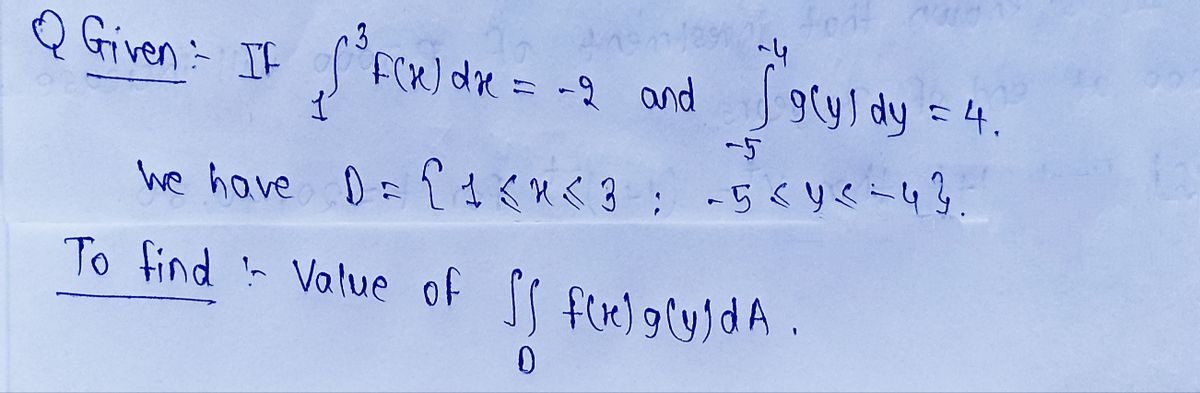 Q Given :- If ∫₁³ f(x) dx = -2 and ∫₋₅⁻⁴ g(y) dy = 4.
we have D = { 1 ≤ x ≤ 3 ; -5 ≤ y ≤ -4 }.
To find :- Value of ∬_D f(x) g(y) dA .